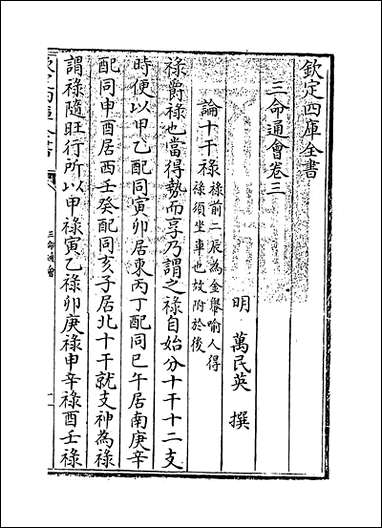 欽定四庫全書
三命通會卷三
明 萬民英 撰
論十干禄 禄前二辰為金轝喻人得
禄須坐車也故附於後
禄爵禄也當得勢而享乃謂之禄自始分十干十二支
時便以甲乙配同寅卯居東丙丁配同巳午居南庚辛
配同申酉居西壬癸配同亥子居北十干就支神為禄
謂禄隨旺行所以甲禄寅乙禄卯庚禄申辛禄酉壬禄
三命通會